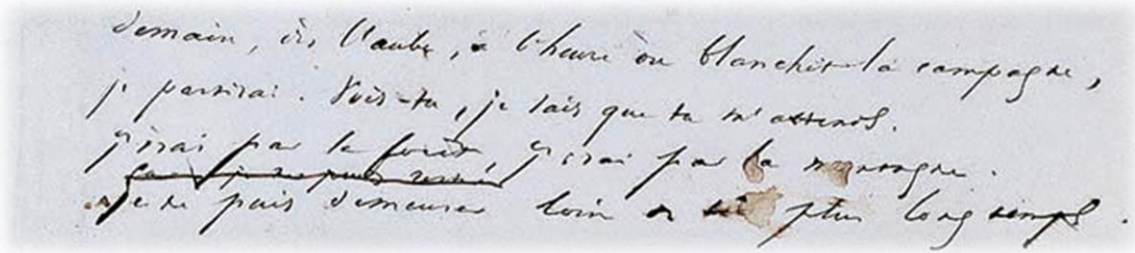 Demain, dès l'aube, à l'heure où blanchit la campagne,
je partirai. Vois-tu, je sais que tu m'attends.
J'irai par la forêt, j'irai par la montagne.
Je ne puis demeurer loin de toi plus longtemps.